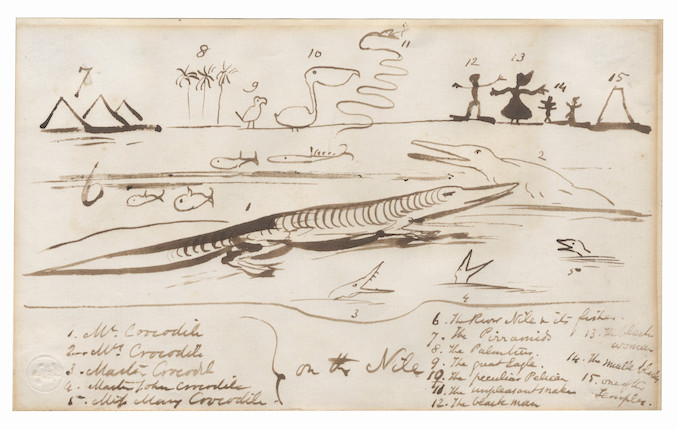 7
8
9
10
11
12
13
14
15
6
1
2
3
4
5
1. Mr. Crocodile
2 - Mrs Crocodile
3 Master Crocodl
4. Master John Crocodile
5. Miss Mary Crocodile.
on the Nile
6. The River Nile & its fishes.
7. The Pirramids
8. The Palmtrees
9. The great Eagle.
10 the peculiar Pelican
11. the unpleasant snake
12. The black man
13. the black
woman
14. the little blacks
15. one of the
Temples.